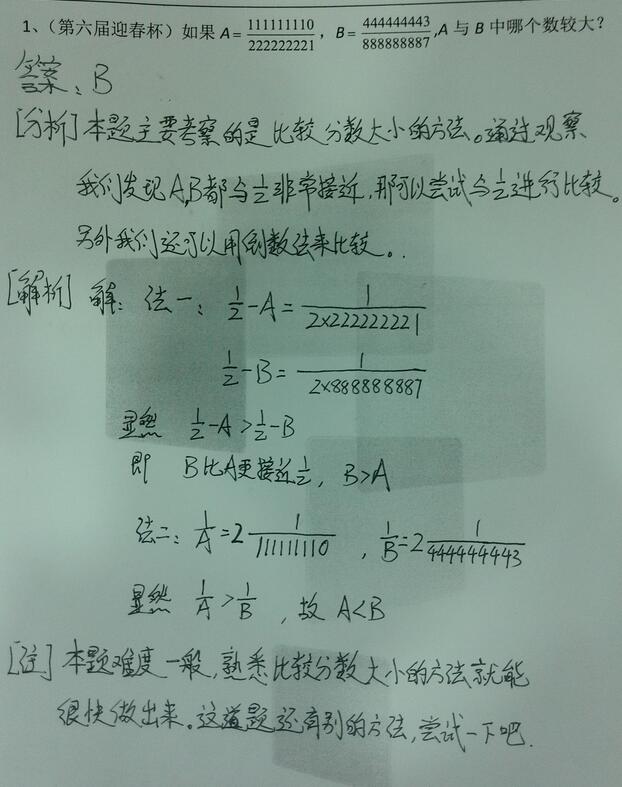 1、（第六届迎春杯）如果 A=111111110/222222221，B=444444443/888888887,A 与 B 中哪个数较大？
答案：B
[分析]本题主要考察的是比较分数大小的方法。通过观察
我们发现A,B都与1/2非常接近,那可以尝试与1/2进行比较。
另外我们还可以用倒数法来比较。
[解析] 解：法一：1/2-A=1/(2×222222221)
1/2-B=1/(2×888888887)
显然 1/2-A>1/2-B
即 B比A更接近1/2, B>A
法二：1/A=2 1/111111110 , 1/B=2 1/444444443
显然 1/A>1/B , 故 A<B
[注]本题难度一般,熟悉比较分数大小的方法就能
很快做出来。这道题还有别的方法,尝试一下吧.